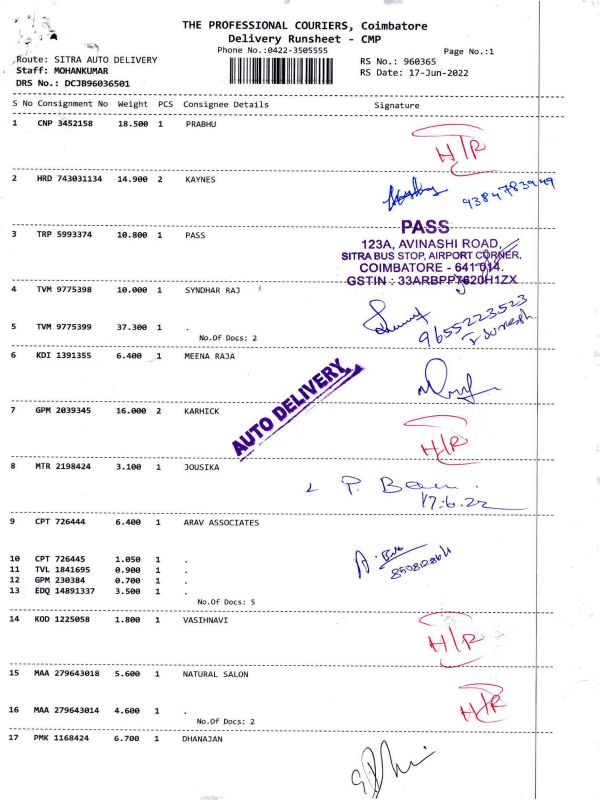 THE PROFESSIONAL COURIERS, Coimbatore
Delivery Runsheet - CMP
Phone No.:0422-3505555
Page No.:1
Route: SITRA AUTO DELIVERY
RS No.: 960365
Staff: MOHANKUMAR
RS Date: 17-Jun-2022
DRS No.: DCJB96036501
S No Consignment No Weight PCS Consignee Details Signature
1 CNP 3452158 18.500 1 PRABHU
H/R
2 HRD 743031134 14.900 2 KAYNES
9384783949
3 TRP 5993374 10.800 1 PASS
PASS
123A, AVINASHI ROAD,
SITRA BUS STOP, AIRPORT CORNER,
COIMBATORE - 641 014.
GSTIN : 33ARBPP7620H1ZX
4 TVM 9775398 10.000 1 SYNDHAR RAJ
5 TVM 9775399 37.300 1 .
No.Of Docs: 2
9655223523
6 KDI 1391355 6.400 1 MEENA RAJA
AUTO DELIVERY
7 GPM 2039345 16.000 2 KARHICK
H/R
8 MTR 2198424 3.100 1 JOUSIKA
17.6.22
9 CPT 726444 6.400 1 ARAV ASSOCIATES
10 CPT 726445 1.050 1 .
11 TVL 1841695 0.900 1 .
12 GPM 230384 0.700 1 .
13 EDQ 14891337 3.500 1 .
No.Of Docs: 5
14 KOD 1225058 1.800 1 VASIHNAVI
H/R
15 MAA 279643018 5.600 1 NATURAL SALON
H/R
16 MAA 279643014 4.600 1 .
No.Of Docs: 2
17 PMK 1168424 6.700 1 DHANAJAN